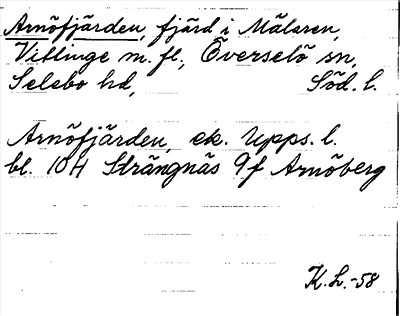 Arnöfjärden, fjärd i Mälaren,
Vitlinge m. fl., Överselö sn,
Selebo hd, Söd. l.
Arnöfjärden, ek. Upps. l.
bl. 10H Strängnäs 9f Arnöberg
K.L.-58